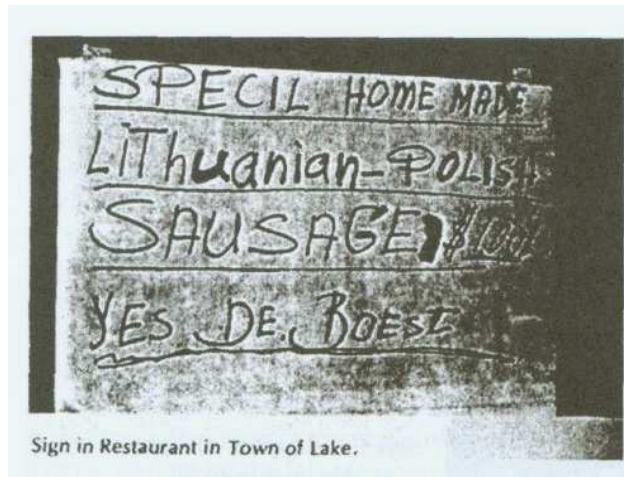 SPECIL HOME MADE
LiThuanian-POLISH
SAUSAGE, $1.00
YES DE. BOEST
Sign in Restaurant in Town of Lake.